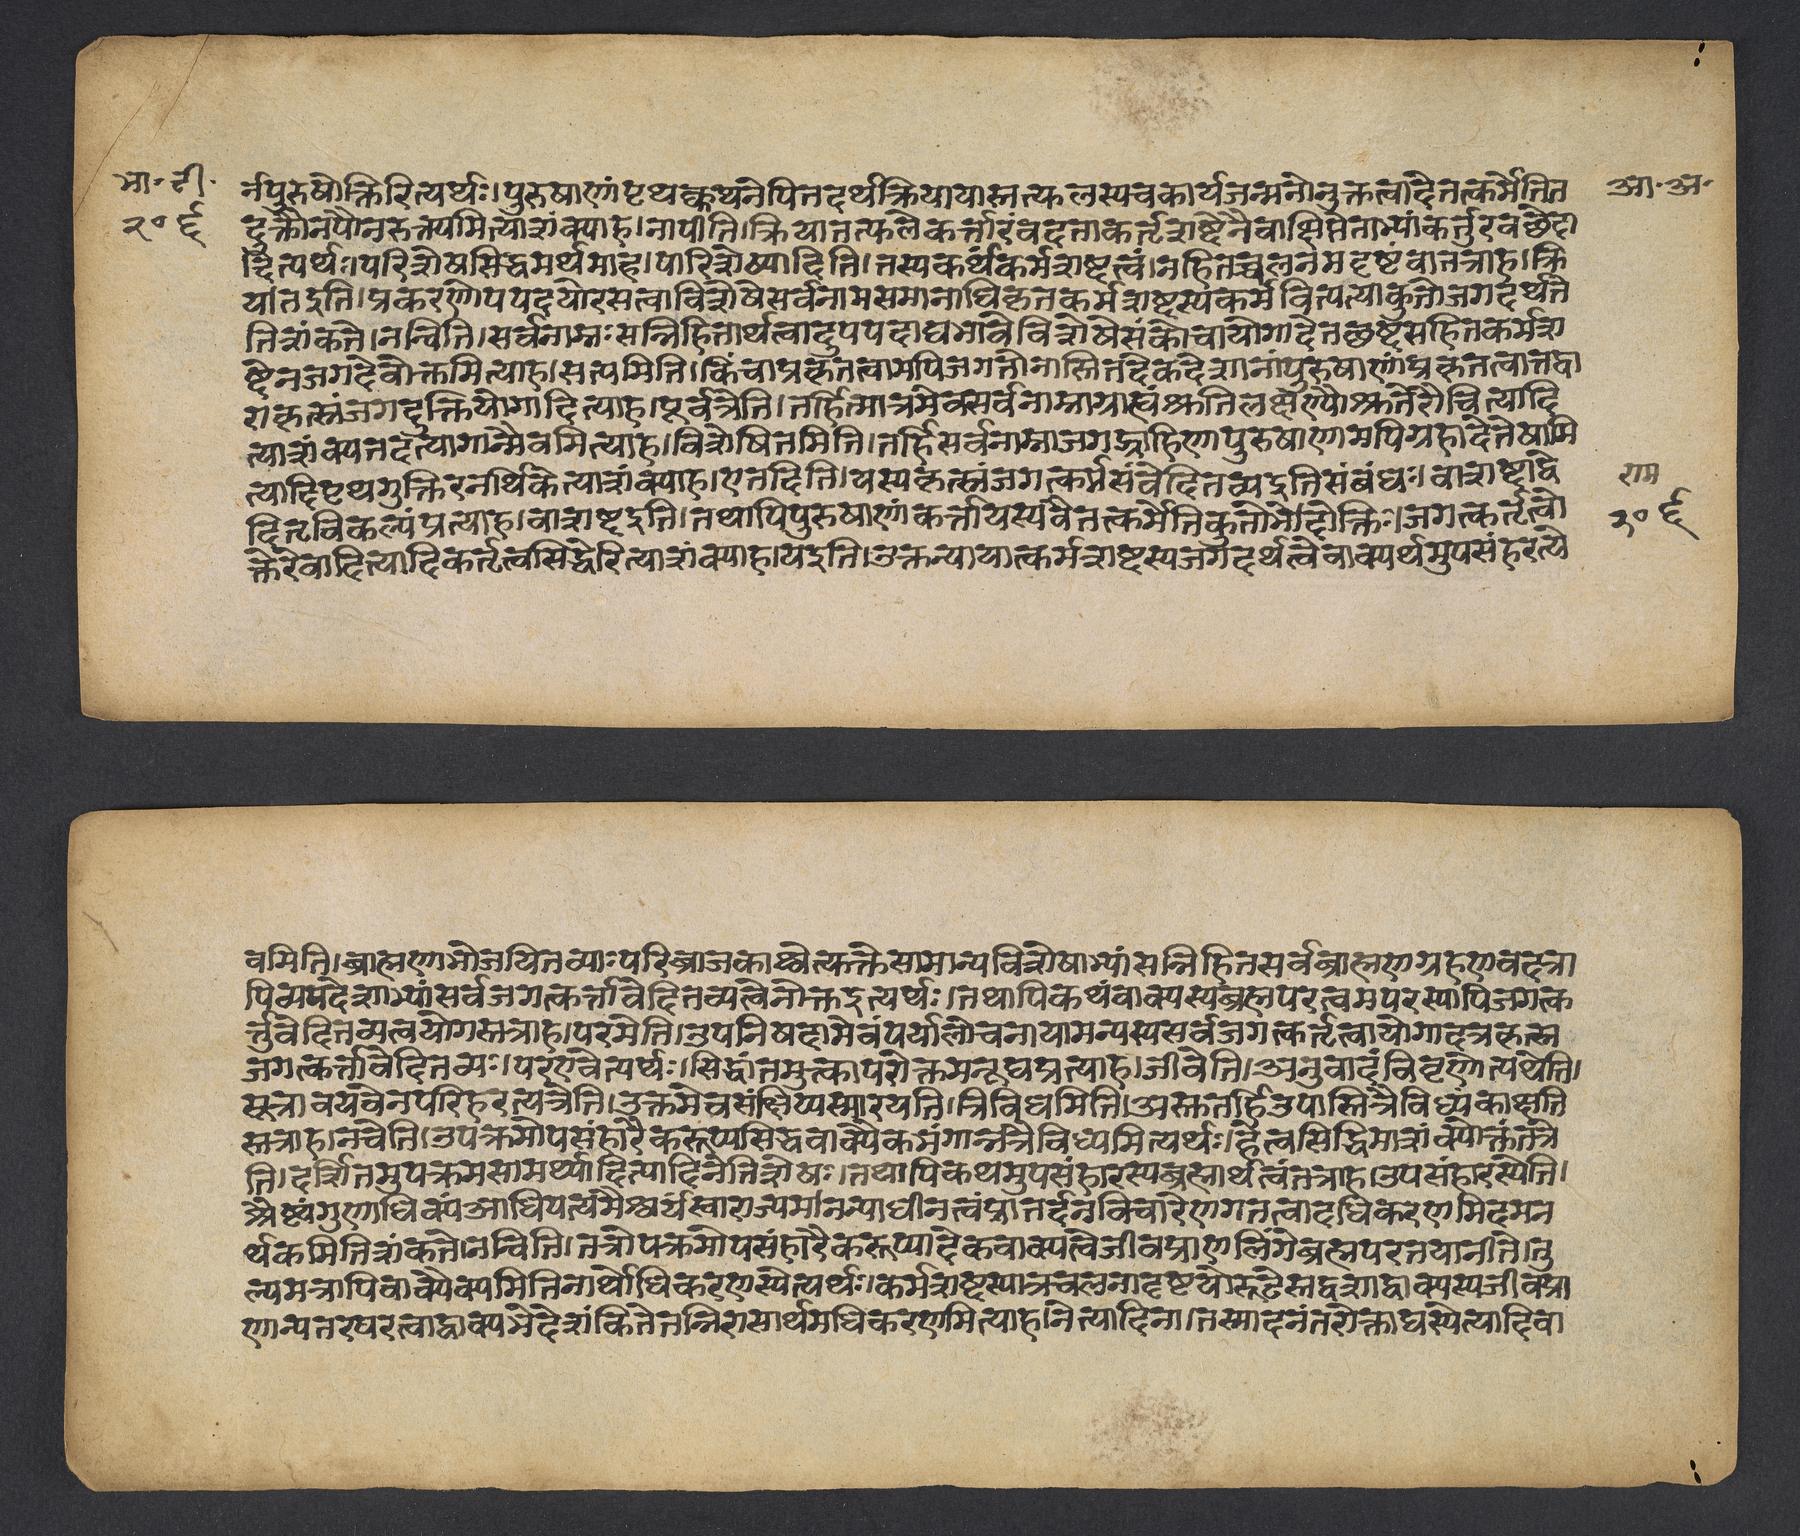 भा॰ टी॰
२०६
र्नपुरुषोक्तिरित्यर्थः।पुरुषाणांपृथक्कथनेपितदर्थक्रियायास्तत्फलस्यचकार्यजन्मनोनुक्तत्वादेतत्कर्मेतित
दुक्तौनपौनरुक्त्यमित्याशंक्याह।नापीति।क्रियातत्फलेकर्त्तारंवदताकर्तृशब्देनैवाक्षिप्तेताभ्यांकर्तुरवछेदा
दित्यर्थः।परिशेषसिद्धमर्थमाह।पारिशेष्यादिति।तस्यकथंकर्मशब्दत्वं।नहितच्चलनमदृष्टंवातत्राह।क्रि
यतिइति।प्रकरणोपपदयोरसत्वाविशेषेसर्वनामसमानाधिकृतकर्मशब्दस्यकर्मवित्पत्याकुतोजगदर्थते
तिशंकते।नन्विति।सर्वनाम्नःसन्निहितार्थत्वादुपपदाद्यभावेविशेषेसंकोचायोगादेतछब्दसहितकर्मश
ब्देनजगदेवोक्तमित्याह।सत्यमिति।किंचाप्रकृतत्वामपिजगतोनास्तितदेकदेशानांपुरुषाणांप्रकृतत्वात्तद्वा
राकृत्स्नंजगदुक्तियोगादित्याह।पूर्वत्रेति।तर्हितमात्रमेवसर्वनाम्नाग्राह्यंश्रुतिलक्षणयोश्रुतेरौचित्यादि
त्याशंक्यतदत्यागान्मैवमित्याह।विशेषितमिति।तर्हिसर्वनाम्नाजगद्ग्राहिणापुरुषाणामपिग्रहादेतेषामि
त्यादिपृथगुक्तिरनर्थिकेत्याशंक्याह।एतदिति।यस्यकृत्स्नंजगत्कर्मसंवेदितव्यइतिसंबंधः।वाशब्दाद्वे
दितृविकल्पंप्रत्याह।वाशब्दइति।तथापिपुरुषाणांकर्त्तायस्यवैतत्कर्मेतिकुतोभेदोक्तिः।जगत्कर्तृत्वो
क्तेरेवादित्यादिकर्तृत्वसिद्धेरित्याशंक्याह।यइति।उक्तन्यायात्कर्मशब्दस्यजगदर्थत्वेवाक्यार्थमुपसंहरत्ये
आ॰ अ॰
राम
२०६
वमिति।ब्राह्मणाभोजयितव्याःपरिब्राजकाश्चेत्यक्तेसामान्यविशेषाभ्यांसन्निहितसर्वब्राह्मणग्रहणवदत्रा
पिव्यपदेशाभ्यांसर्वजगत्कर्त्तावेदितव्यत्वेनोक्तइत्यर्थः।तथापिकथंवाक्यस्यब्रह्मपरत्वमपरस्यापिजगत्क
र्त्तुवेदितव्यत्वयोगस्तत्राह।परमेति।उपनिषदामेवंपर्यालोचनायामन्यस्यसर्वजगत्कर्तृत्वायोगादत्रकृत्स्न
जगत्कर्त्तावेदितव्यः।परएवेत्यर्थः।सिद्धांतमुत्कापरोक्तमनूद्यप्रत्याह।जीवेति।अनुवादंविवृणोत्यथेति।
सूत्रावयवेनपरिहरत्यत्रेति।उक्तमेवसंक्षिप्यस्मारयति।त्रिविधमिति।अस्तुतर्हिउपास्तित्रैविध्यंकाक्षति
स्तत्राह।नचेति।उपक्रमोपसंहारैकरूप्यसिद्धवाक्यैकभंगान्नत्रैविध्यमित्यर्थः।हेत्वसिद्धिमाशंक्योक्तंतत्रे
ति।दर्शितमुपक्रमसामर्थ्यादित्यादिनेतिशेषः।तथापिकथमुपसंहारस्यब्रह्मार्थत्वंतत्राह।उपसंहारस्येति।
श्रैष्ठ्यंगुणाधिक्यंआधिपत्यंमैश्वर्यंस्वाराज्यमनन्याधीनत्वंप्रातर्दनविचारेणगतत्वादधिकरणमिदमन
र्थकमितिशंकते।नन्विति।तत्रोपक्रमोपसंहारैकरूप्यादेकवाक्यत्वेजीवप्राणलिंगेब्रह्मपरतयानीते।तु
ल्यमत्रापिवाक्यैक्यमितिनार्थोधिकरणस्येत्यर्थः।कर्मशब्दस्यात्रचलनादृष्टयोरूढेस्तद्वशाद्वाक्यस्यजीवप्रा
णान्यतरपरत्वाद्वाक्यभेदेशंकितेतन्निरासार्थमधिकरणमित्याह।नेत्यादिना।तस्मादनंतरोक्ताद्यस्येत्यादिवा